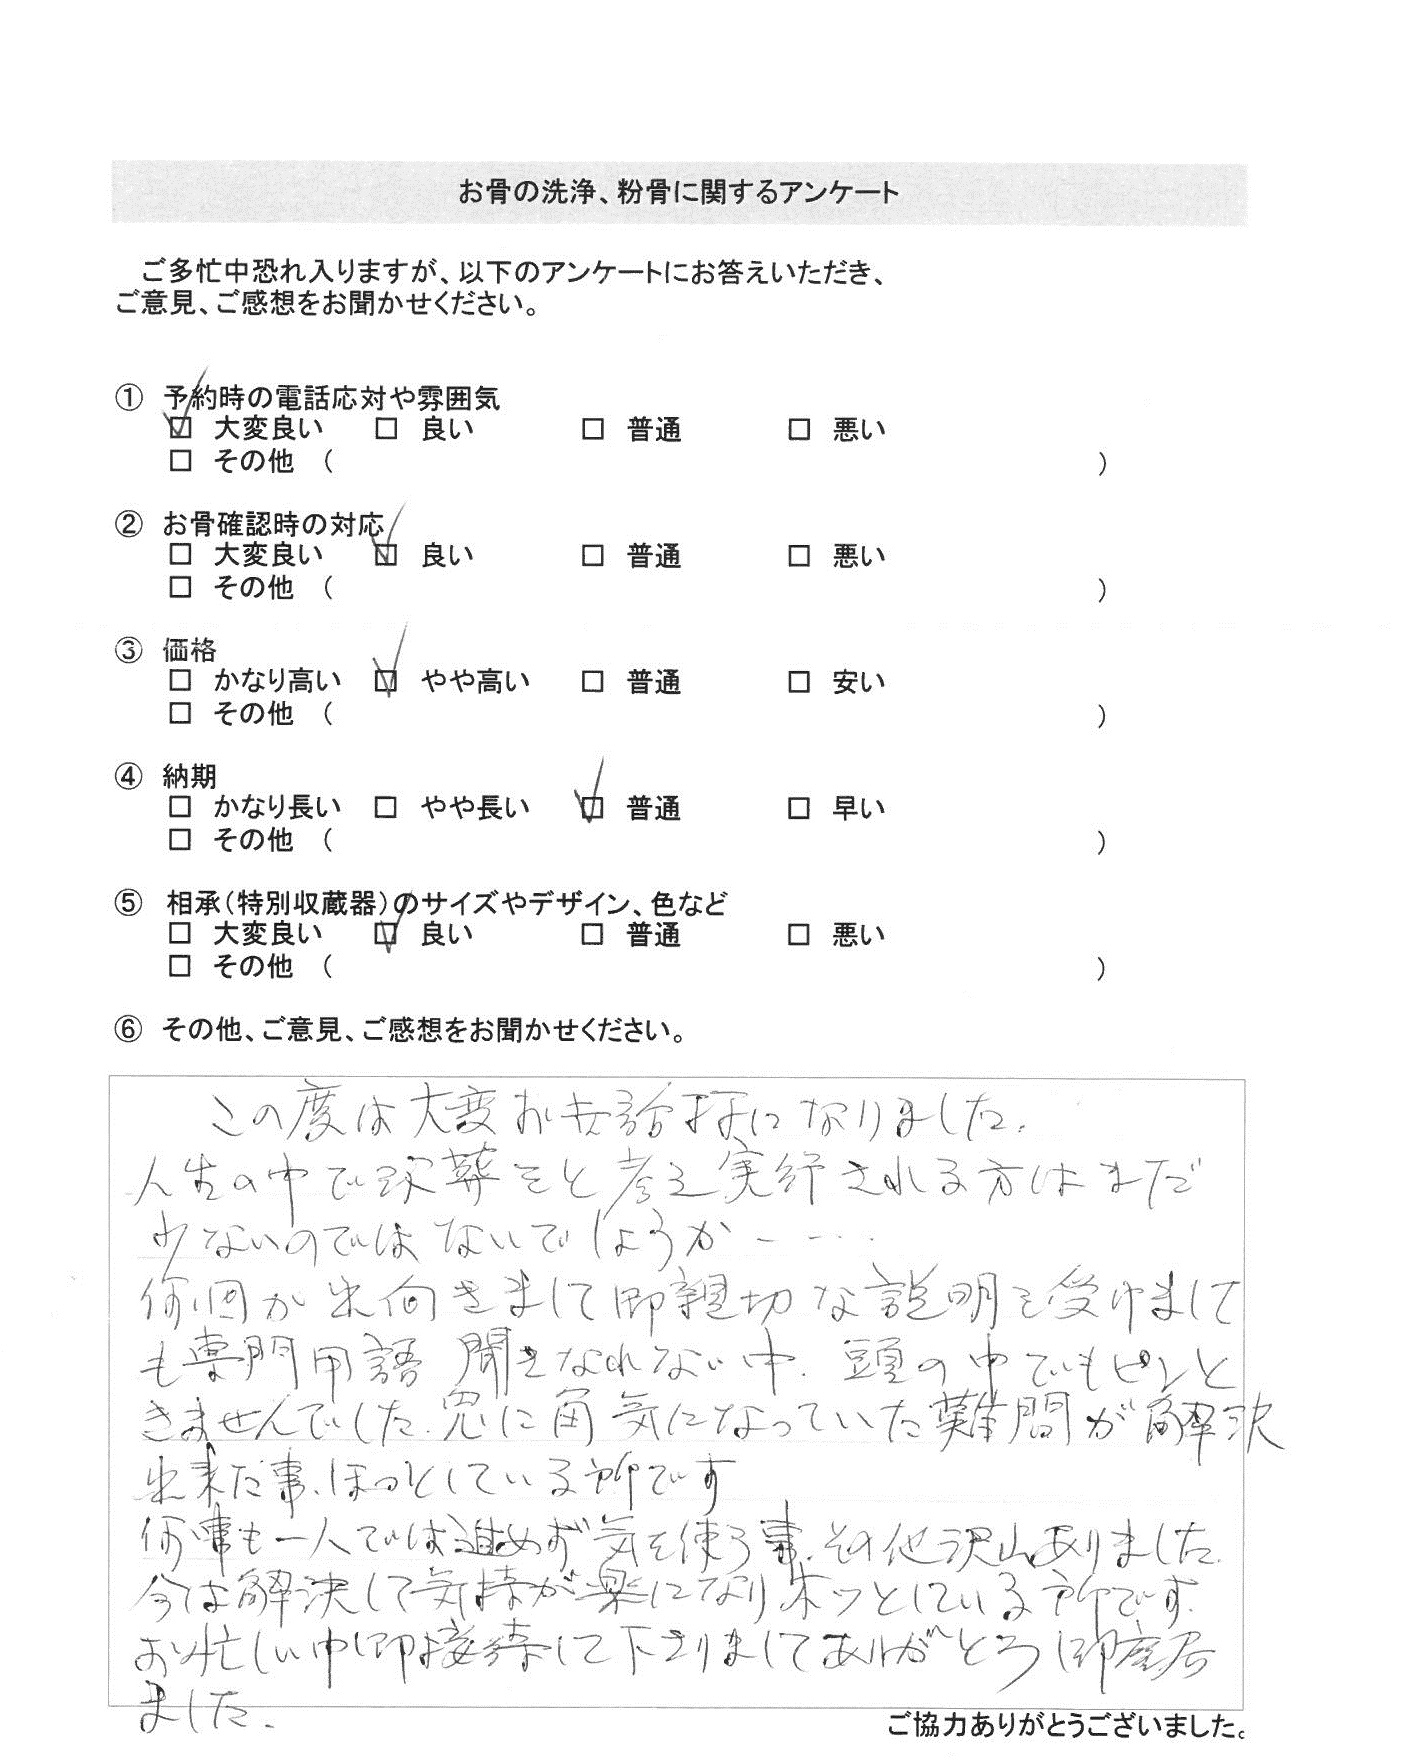 お骨の洗浄、粉骨に関するアンケート
ご多忙中恐れ入りますが、以下のアンケートにお答えいただき、
ご意見、ご感想をお聞かせください。
① 予約時の電話応対や雰囲気
☑ 大変良い □ 良い □ 普通 □ 悪い
□ その他 ( )
② お骨確認時の対応
□ 大変良い ☑ 良い □ 普通 □ 悪い
□ その他 ( )
③ 価格
□ かなり高い ☑ やや高い □ 普通 □ 安い
□ その他 ( )
④ 納期
□ かなり長い □ やや長い ☑ 普通 □ 早い
□ その他 ( )
⑤ 相承(特別収蔵器)のサイズやデザイン、色など
□ 大変良い ☑ 良い □ 普通 □ 悪い
□ その他 ( )
⑥ その他、ご意見、ご感想をお聞かせください。
この度は大変お世話様になりました.
人生の中で 考え実行される方はまだ
少ないのではないでしょうか‥‥
何回か出向きまして御親切な説明を受けまして
も専門用語 聞きなれない中、頭の中でもピンと
きませんでした.兎に角気になっていた難問が解決
出来た事、ほっとしている所です
何事も一人では進めず気を使う事、その他沢山ありました.
今は解決して気持が楽になりホッとしている所です.
お忙しい中御接待して下さりましてありがとう御座居
ました.
ご協力ありがとうございました。